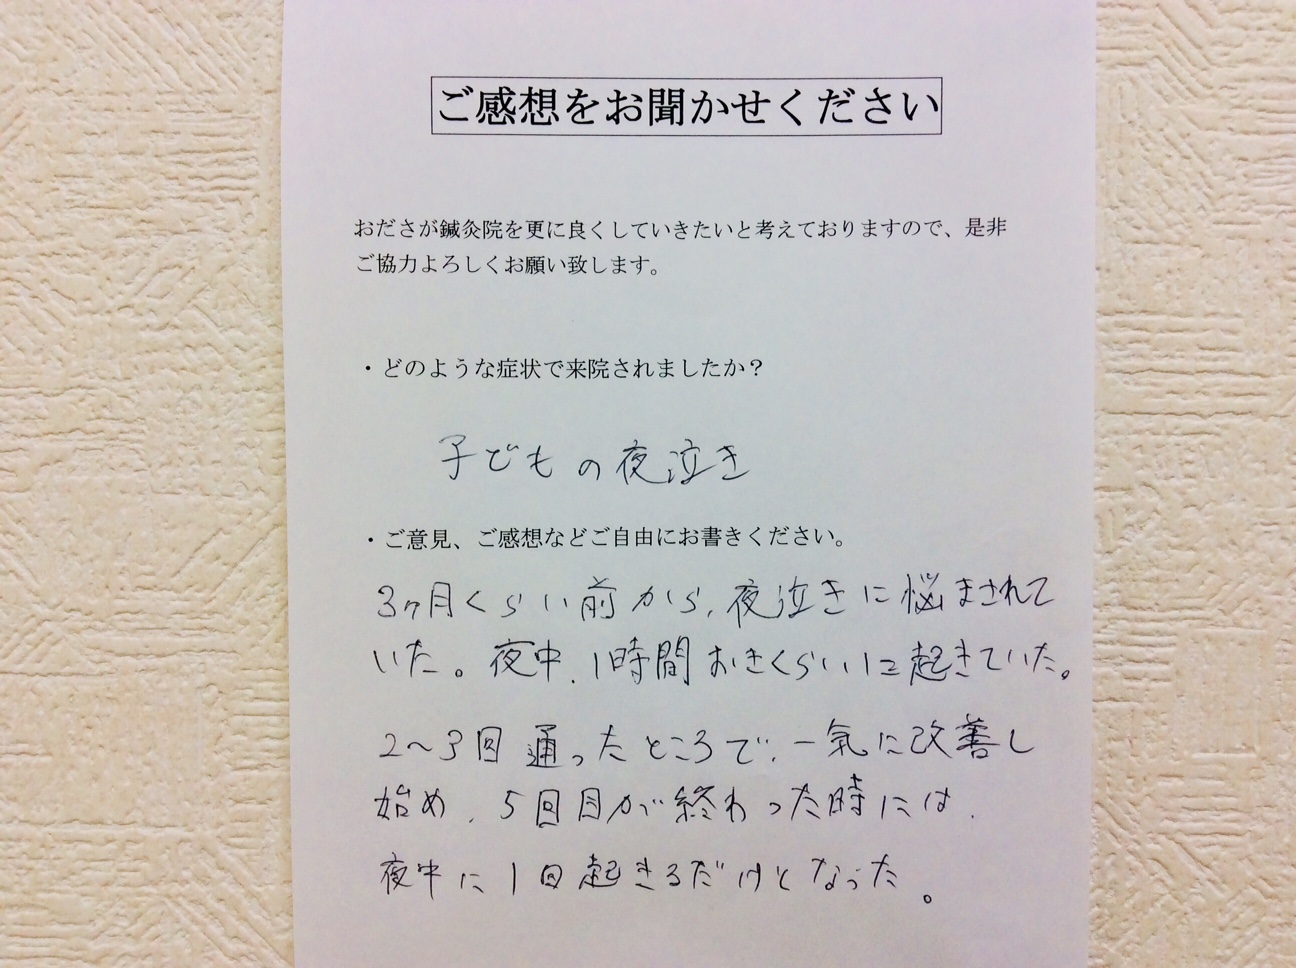 ご感想をお聞かせください
おださが鍼灸院を更に良くしていきたいと考えておりますので、是非
ご協力よろしくお願い致します。
・どのような症状で来院されましたか？
子どもの夜泣き
・ご意見、ご感想などご自由にお書きください。
3ヶ月くらい前から、夜泣きに悩まされて
いた。夜中、1時間おきくらいに起きていた。
2〜3回通ったところで、一気に改善し
始め、5回目が終わった時には、
夜中に1回起きるだけとなった。